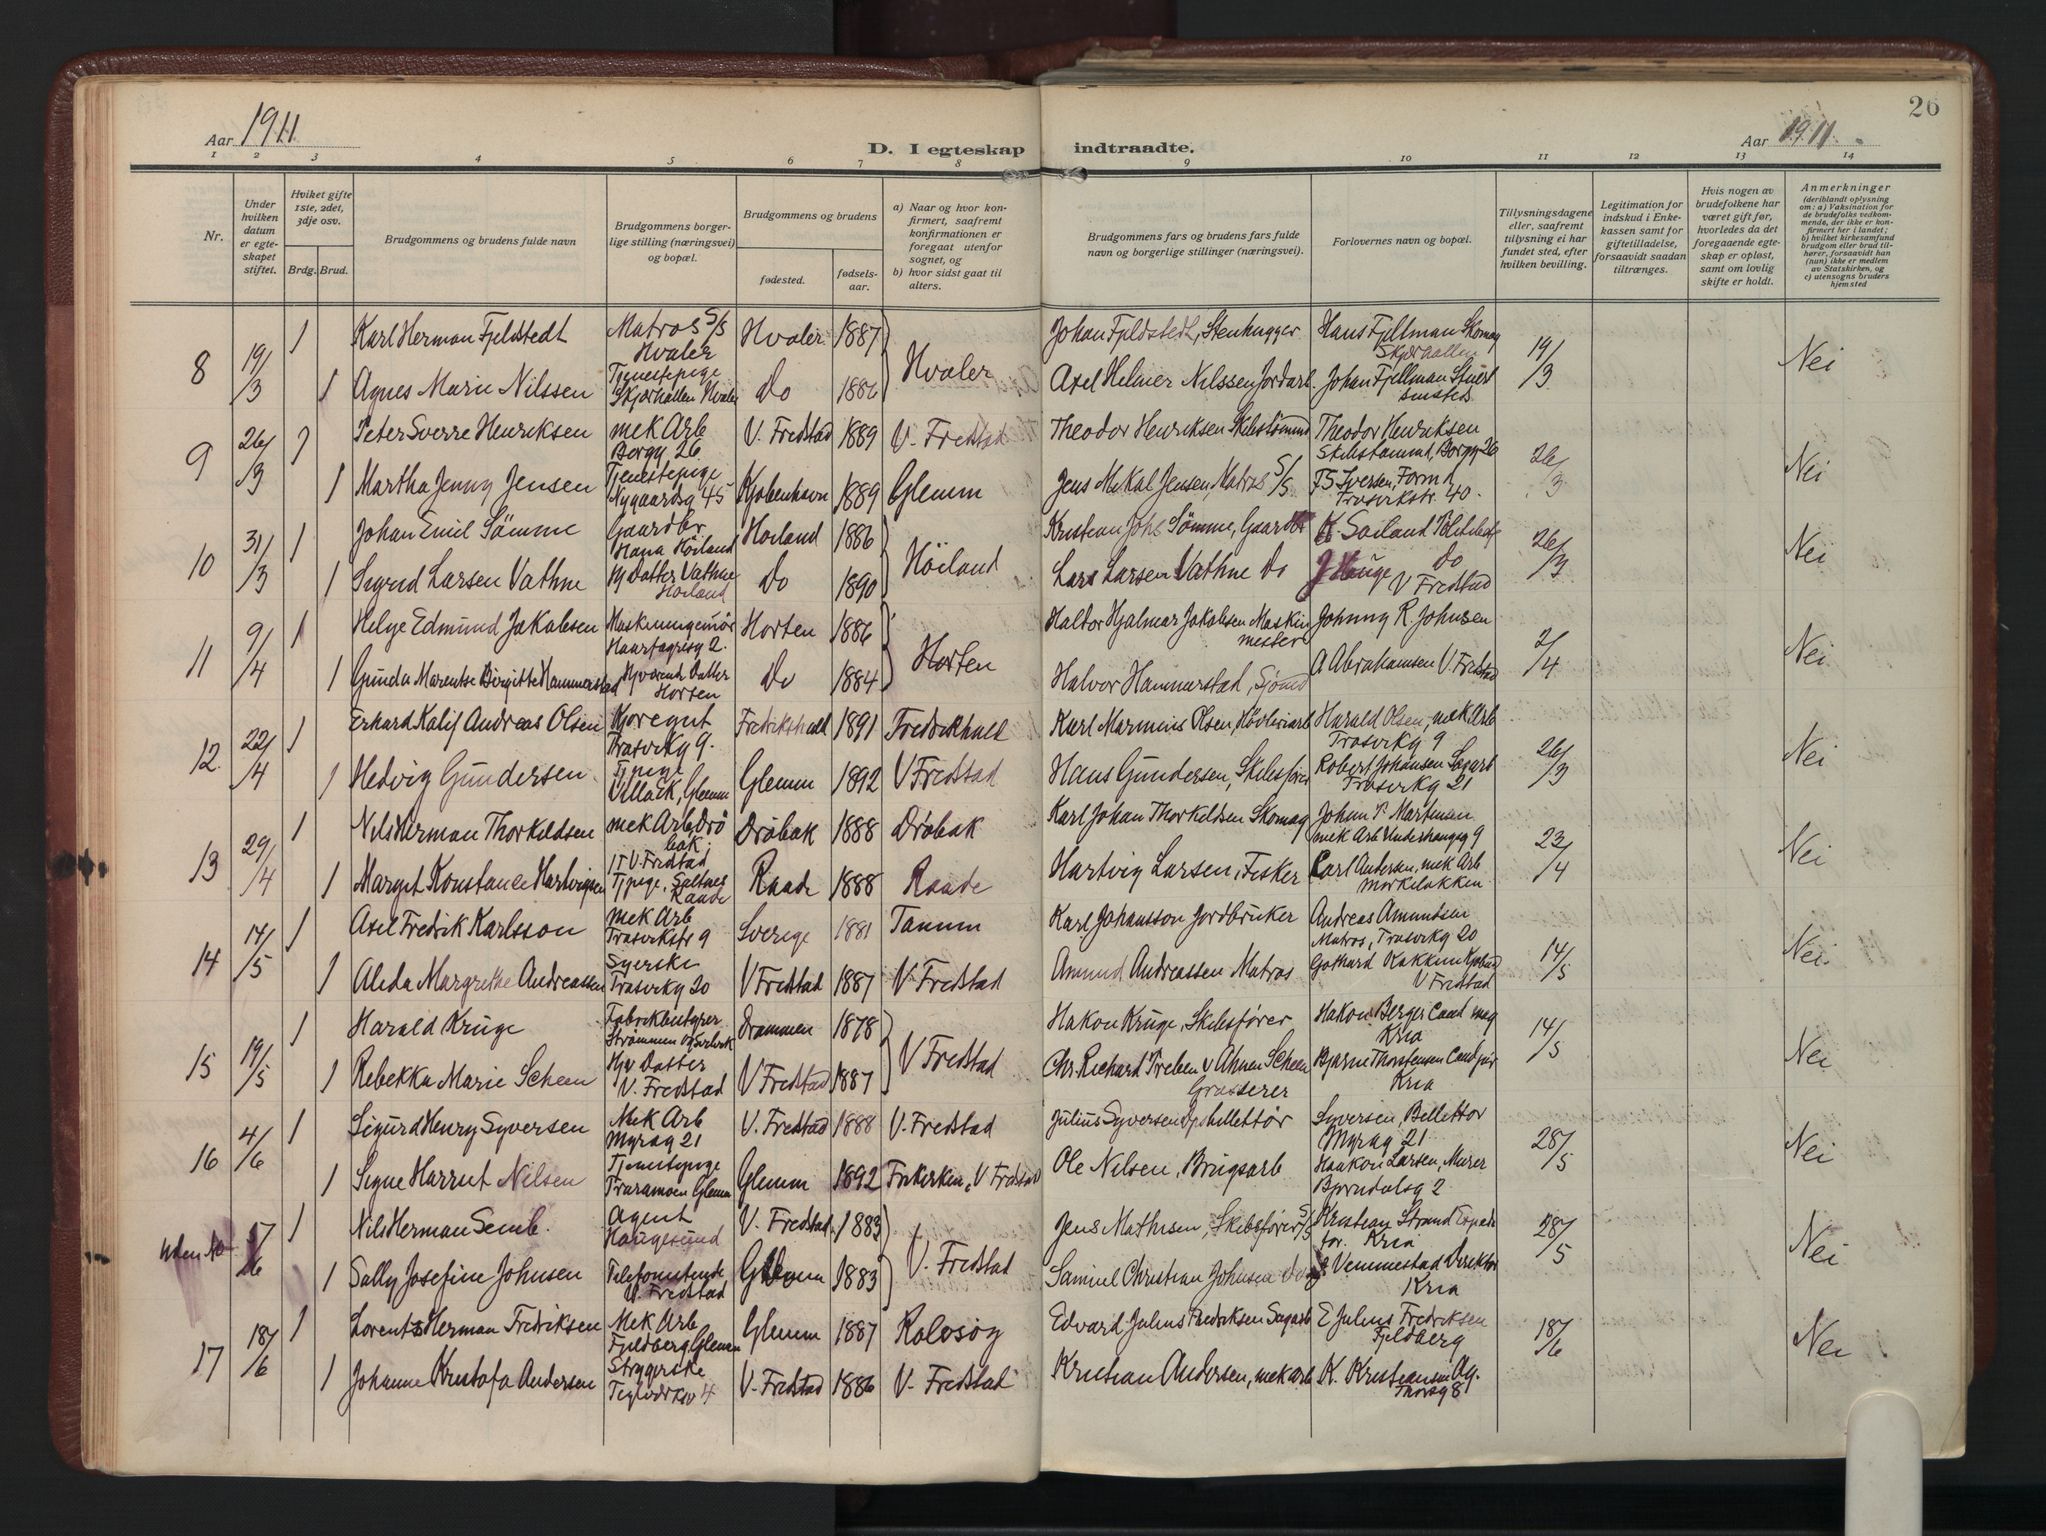 26
Aar 1911
D. I egteskap indtraadte.
Aar 1911.
1 2 3 4 5 6 7 8 9 10 11 12 13 14
Nr.
Under hvilken datum er egteskapet stiftet.
Hviket gifte 1ste, 2det, 3dje osv.
Brdg. Brud.
Brudgommens og brudens fulde navn
Brudgommens borgerlige stilling (næringsvei) og bopæl.
Brudgommens og brudens
fødested.
fødselsaar.
a) Naar og hvor konfirmert, saafremt konfirmationen er foregaat utenfor sognet, og
b) hvor sidst gaat til alters.
Brudgommens fars og brudens fars fulde navn og borgerlige stillinger (næringsvei).
Forlovernes navn og bopæl.
Tillysningsdagene eller, saafremt tillysning ei har fundet sted, efter hvilken bevilling.
Legitimation for indskud i Enkekassen samt for giftetilladelse, forsaavidt saadan tiltrænges.
Hvis nogen av brudefolkene har været gift før, hvorledes da det foregaaende egteskap er opløst, samt om lovlig skifte er holdt.
Anmerkninger (deriblandt oplysning om: a) Vaksination for de brudefolks vedkommende, der ikke er konfirmert her i landet; b) hvilket kirkesamfund brudgom eller brud tilhører, forsaavidt han (hun) ikke er medlem av Statskirken, og c) utensogns bruders hjemsted
8 19/3 1 Karl Herman Fjeldstedt Matros S/S Hvaler Hvaler 1887 Hvaler Johan Fjeldstedt, Stenhugger Hans Fjellman Skomag Skjærhallen 19/3 Nei
1 Agnes Marie Nilssen Tjenestepige Skjærhallen Hvaler Do 1886 Axel Helmer Nilssen Jordarb. Johan Fjellman
9 26/3 1 Peter Sverre Henriksen mek Arb Bergg 26 V. Fredstad 1889 V. Fredstad Theodor Henriksen Skibstømmd Theodor Henriksen Skibstømmd, Borgg 26 26/3 Nei
1 Martha Jenny Jensen Tjenestepige Nygaardsg 45 Kjøbenhavn 1889 Glemm Jens Mikal Jensen, Matros S/S F S Iversen, Formd Trosvikstr. 40.
10 31/3 1 Johan Emil Sömme Gaardbr Hana Höiland Hoiland 1886 Höiland Kristian Johs Sömme, Gaardbr K. Soiland 26/3 Nei
1 Sigrid Larsen Vathne Hj Datter Vathne Hoiland Do 1890 Lars Larsen Vathne Do J Hauge Do V Fredstad
11 9/4 1 Helge Edmund Jakobsen Maskiningeniør Haarfagresg 2. Horten 1886 Horten Haldor Hjalmar Jakobsen Maskinmester Johnny R. Johnsen 2/4 Nei
1 Gunda Marentse Birgitte Hammerstad Hjværende Datter Horten Do 1884 Halvor Hammerstad, Sjömd A Abrahamsen V. Fredstad
12 22/4 1 Erhard Kalif Andreas Olsen Kjøregut Trosvikg 9. Fredrikshald 1891 Fredrikhald Karl Marinius Olsen, Høvleriarb Harald Olsen, mek Arb Trosvikg 9 26/3 Nei
1 Hedvig Gundersen Tjpige Glemm Glemm 1892 V Fredstad Hans Gundersen, Skibsfører Robert Johansen Sagarb Trosvikg 21
13 29/4 1 Nils Herman Thorkildsen mek Arb Drøbak Drøbak 1888 Drøbak Karl Johan Thorkildsen Skomag Johan P. Martinsen mek Arb Underhaugsg 9 23/4 Nei
1 Margit Konstance Hartvigsen Tjpige, Saltnes Raade Raade 1888 Raade Hartvig Larsen, Fisker Carl Andersen, mek Arb
14 14/5 1 Axel Fredrik Karlsson mek Arb Trosvikstr 9 Sverige 1881 Tanum Karl Johansson Jordbruker Andreas Amundsen Matros, Trosvikg 20 14/5 Nei
1 Alida Margrethe Andreassen Syerske Trosvikg 20 V Fredstad 1887 V. Fredstad Amund Andreassen Matros Gothard V Fredstad
15 19/5 1 Harald Kruge Fabrikbestyrer Strømmen Drammen 1878 V Fredstad Hakon Kruge, Skibsfører Hakon Berger Cand med Kria 14/5 Nei
1 Rebekka Marie Scheen Hjv Datter V. Fredstad V Fredstad 1887 Chr. Richard Treben v Ahnen Scheen Grosserer Bjarne Thorstensen Cand jur Kria
16 4/6 1 Sigurd Henry Syversen Mek Arb Myrag 21 V. Fredstad 1888 V. Fredstad Julius Syversen Opsbillettør Syversen Billettør Myrag 21 28/5 Nei
1 Signe Harriet Nilsen Tjenestepige Traramoen Glemm Glemm 1892 Frikirken, V Fredstad Ole Nilsen, Brugsarb Haakon Larsen, Murer Bjørndalsg 2
Uden No 5/6 1 Nils Herman Semb. Agent Haugesund V. Fredstad 1883 V. Fredstad Jens Mathisen, Skibsfører S/S Kristian Strand Kria 28/5 Nei
1 Sally Josefine Johnsen Telefonistinde, V. Fredstad Glemm 1883 Samuel Christian Johnsen do Vemmestad Direktør Kria
17 18/6 1 Lorentz Herman Fredriksen Mek Arb Fjeldberg, Glemm Glemm 1887 Rolvsøy Edvard Julius Fredriksen Sagarb E Julius Fredriksen Fjeldberg 18/6 Nei
1 Johanne Kristofa Andersen Strygerske V. Fredstad 1886 V. Fredstad Kristian Andersen, mek arb K. Kristiansen Ag. Thorsg 8